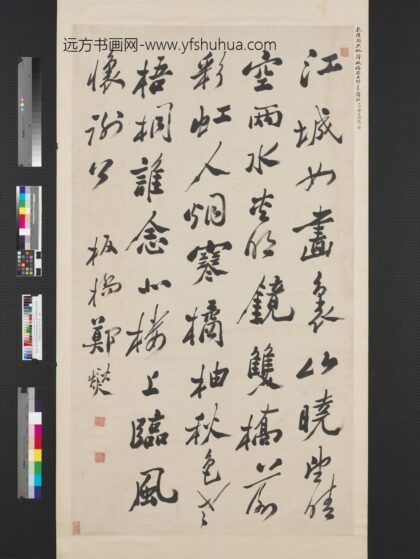 远方书画网-www.yfshuhua.com
江城如畫裏山曉望晴
空兩水夾明鏡雙橋落
彩虹人烟寒橘柚秋色老
梧桐誰念北樓上臨風
懷謝公 板橋鄭燮